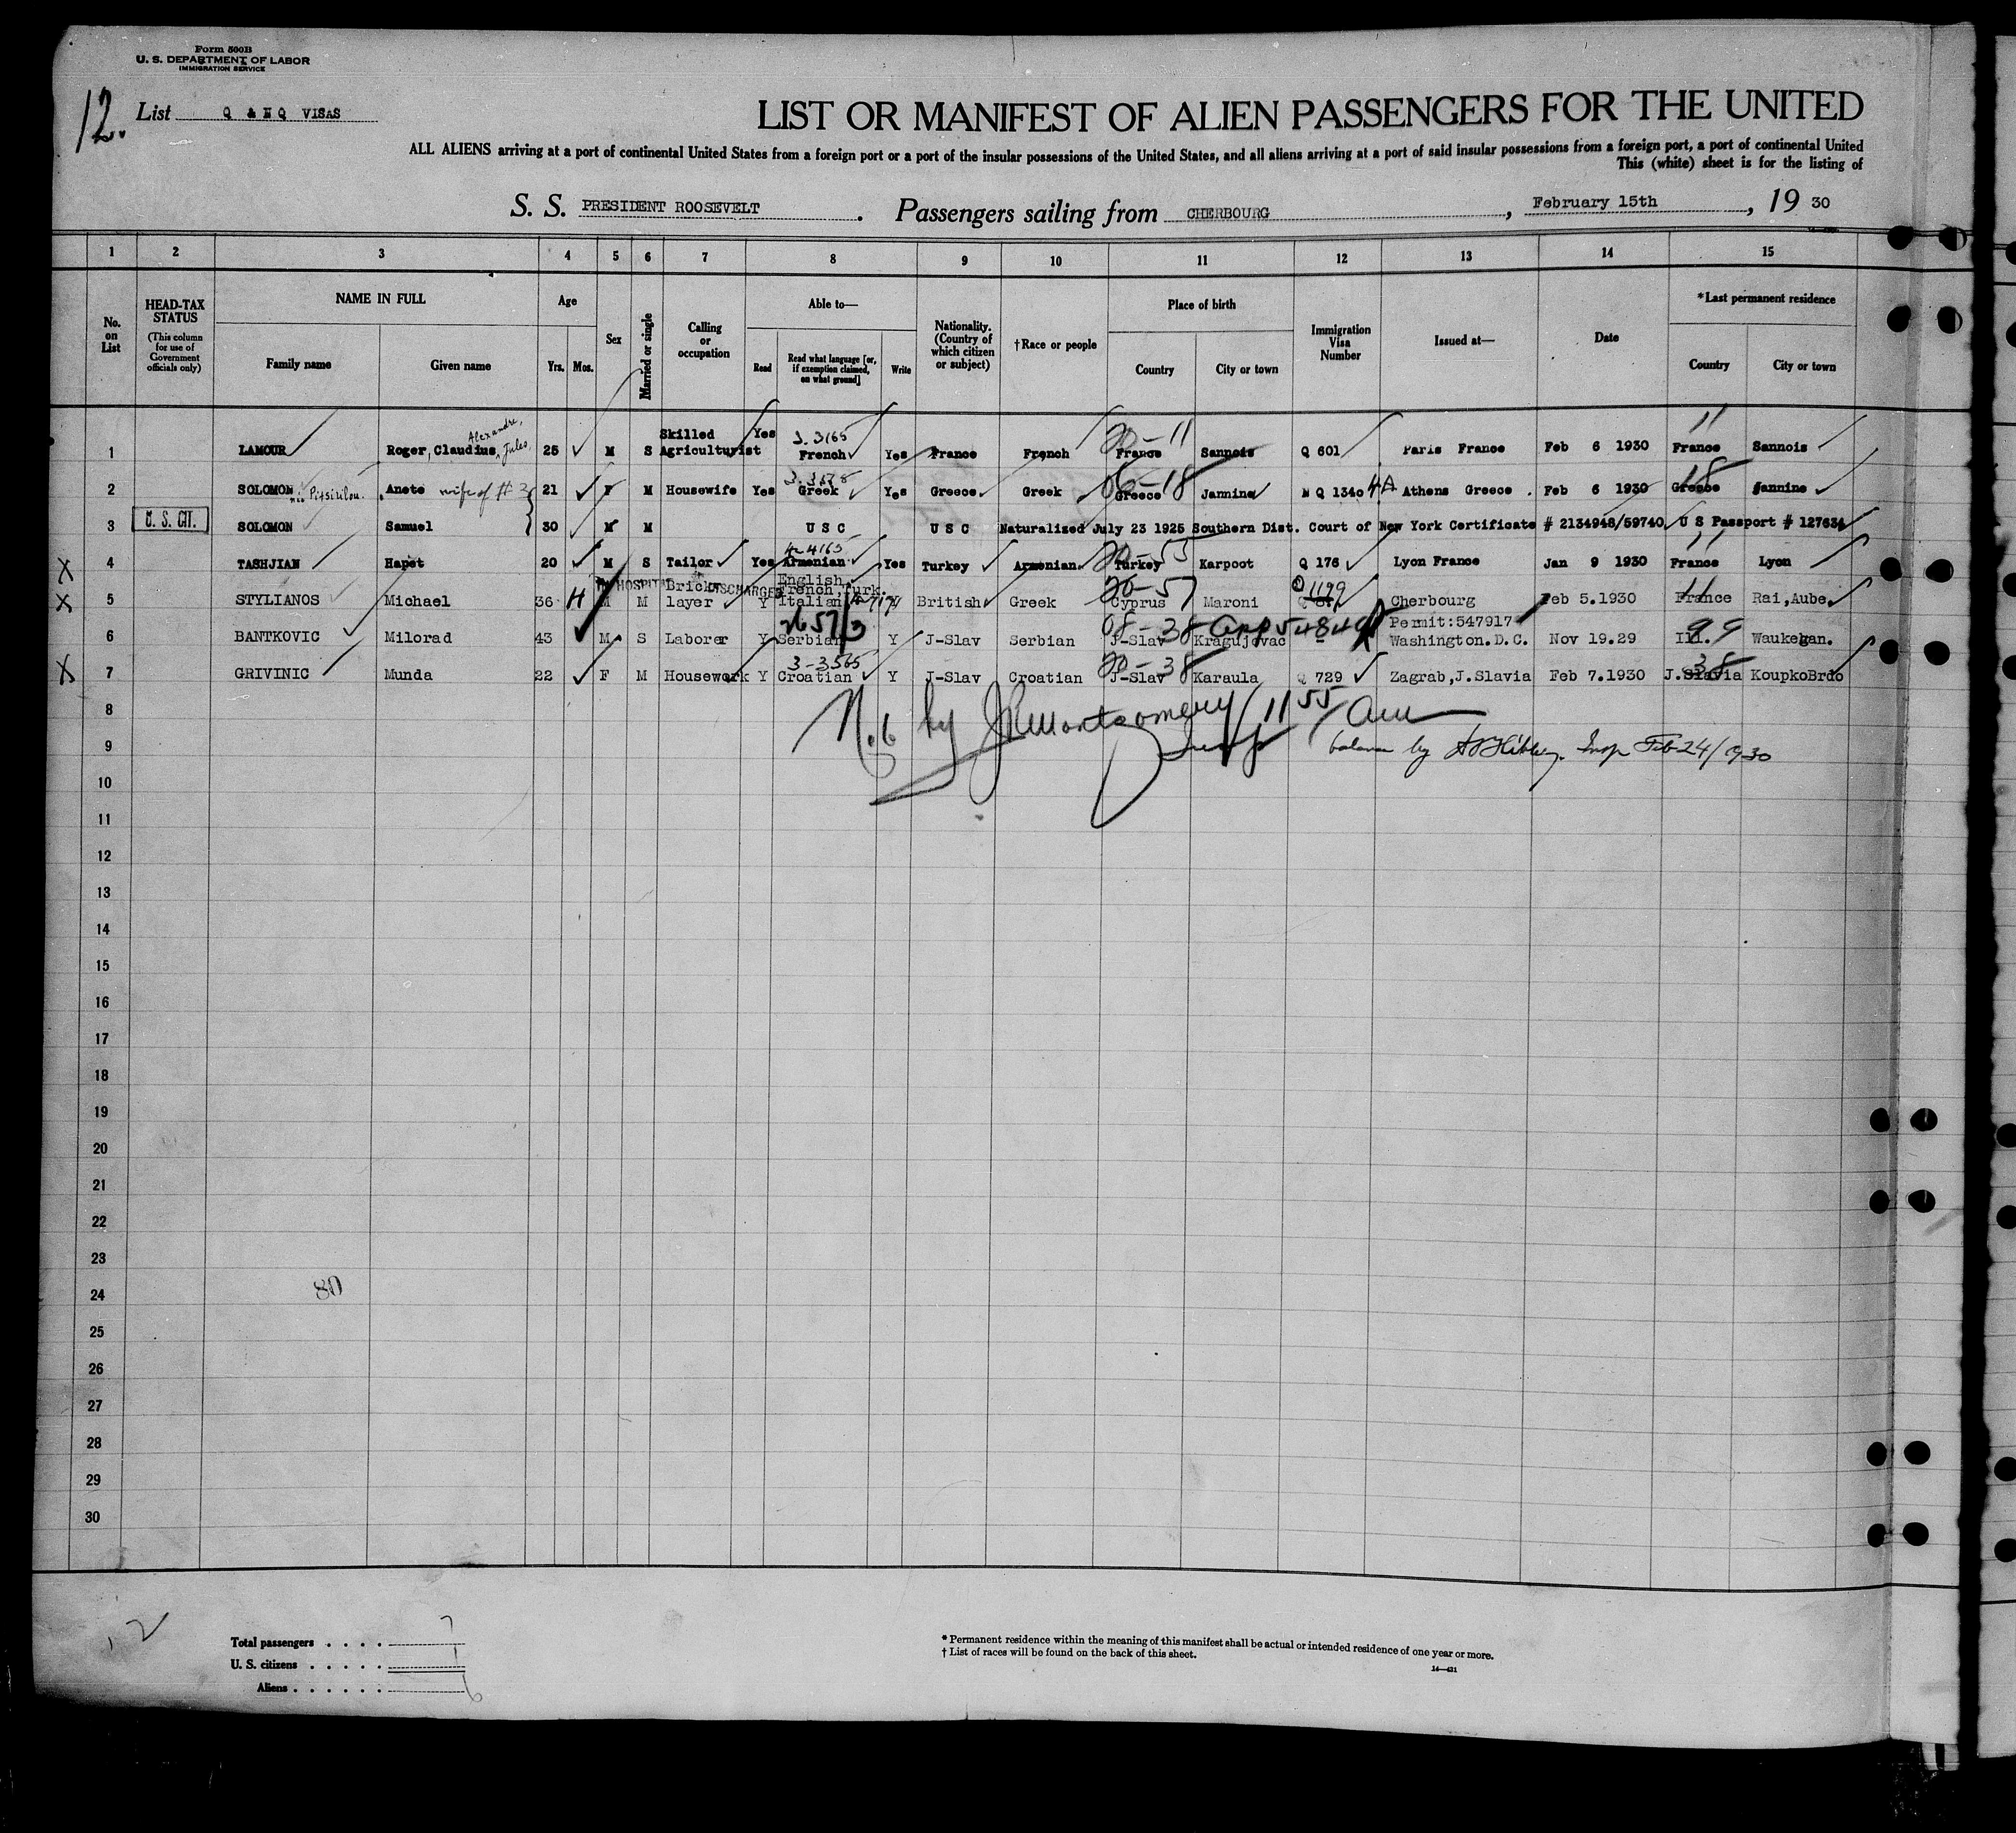 Form 500B
U. S. DEPARTMENT OF LABOR
IMMIGRATION SERVICE
12.
List Q & N Q VISAS
LIST OR MANIFEST OF ALIEN PASSENGERS FOR THE UNITED
ALL ALIENS arriving at a port of continental United States from a foreign port or a port of the insular possessions of the United States, and all aliens arriving at a port of said insular possessions from a foreign port, a port of continental United
This (white) sheet is for the listing of
S. S. PRESIDENT ROOSEVELT . Passengers sailing from CHERBOURG , February 15th , 19 30
1 2 3 4 5 6 7 8 9 10 11 12 13 14 15
No. on List
HEAD-TAX STATUS (This column for use of Government officials only)
NAME IN FULL
Family name Given name
Age
Yrs. Mos.
Sex
Married or single
Calling or occupation
Able to—
Read Read what language [or, if exemption claimed, on what ground] Write
Nationality. (Country of which citizen or subject)
†Race or people
Place of birth
Country City or town
Immigration Visa Number
Issued at—
Date
*Last permanent residence
Country City or town
1 LAMOUR Roger, Claudius, Alexandre, Jules 25 M S Skilled Agriculturist Yes 3.3165 French Yes France French 20-11 France Sannois Q 601 Paris France Feb 6 1930 11 France Sannois
2 SOLOMON Anete wife of #3 21 F M Housewife Yes Greek Yes Greece Greek 06-18 Greece Jannine N Q 1340 4A Athens Greece . Feb 6 1930 18 Greece Jannine
U. S. CIT.
3 SOLOMON Samuel 30 M M U S C U S C Naturalized July 23 1925 Southern Dist. Court of New York Certificate # 2134948/59740 U S Passport # 127634
X 4 TASHJIAN Hapet 20 M S Tailor Yes 4-4165 Armenian Yes Turkey Armenian 20-55 Turkey Karpoot Q 176 Lyon France Jan 9 1930 11 France Lyon
X 5 STYLIANOS Michael 36 H IN HOSPITAL M M Brick layer DISCHARGED Y English French, Turk. Italian Y British Greek 20-57 Cyprus Maroni Q 1199 Cherbourg Feb 5.1930 11 France Rai, Aube.
6 BANTKOVIC Milorad 43 M S Laborer Y Serbian Y J-Slav Serbian 08-38 J-Slav Kragujevac Permit:547917 Washington.D.C. Nov 19.29 99 Ill. Waukegan.
X 7 GRIVINIC Munda 22 F M Housework Y 3-3565 Croatian Y J-Slav Croatian 20-38 J-Slav Karaula Q 729 Zagrab, J.Slavia Feb 7.1930 38 J.Slavia KoupkoBrdo
8 N.6 by JR Montgomery 11 55 am
9 Insp balance by Insp Feb 24/1930
10
11
12
13
14
15
16
17
18
19
20
21
22
23
24 80
25
26
27
28
29
30
12
Total passengers . . . . 7
U. S. citizens . . . . . 1
Aliens . . . . . . 6
* Permanent residence within the meaning of this manifest shall be actual or intended residence of one year or more.
† List of races will be found on the back of this sheet.
14—421